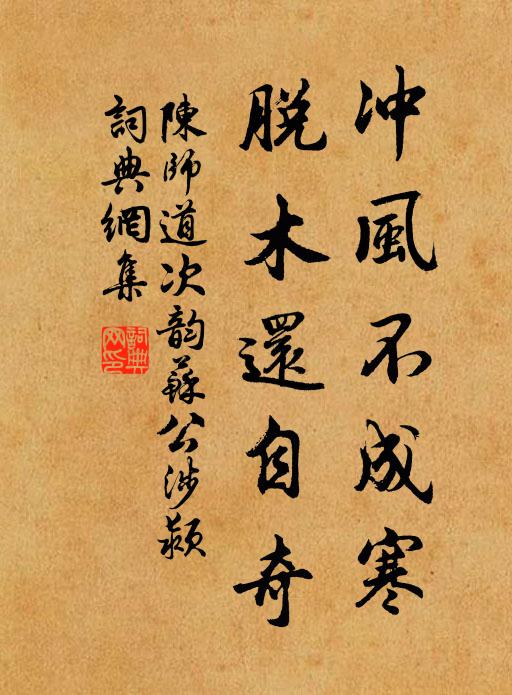 冲風不成寒
脫木還自奇
陳師道次韵蘇公涉潁
詞典網集
詞典
网印